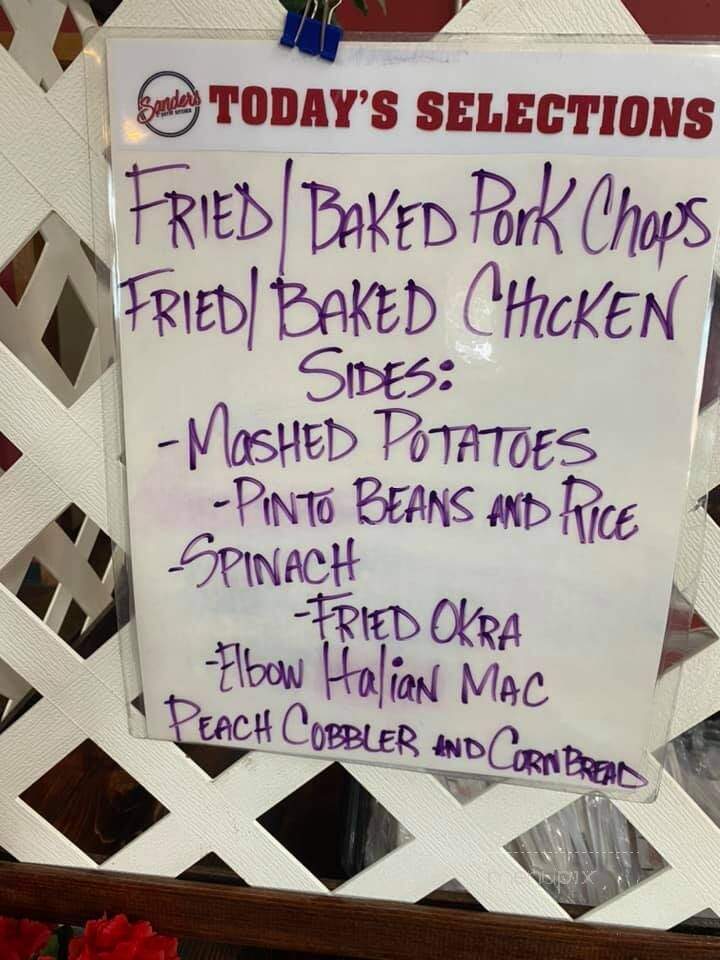 Sanders
TODAY'S SELECTIONS
FRIED/BAKED Pork Chops
FRIED/BAKED CHICKEN
SIDES:
-MASHED POTATOES
-PINTO BEANS AND RICE
-SPINACH
-FRIED OKRA
-Elbow Italian MAC
PEACH COBBLER AND CORN BREAD
menupix